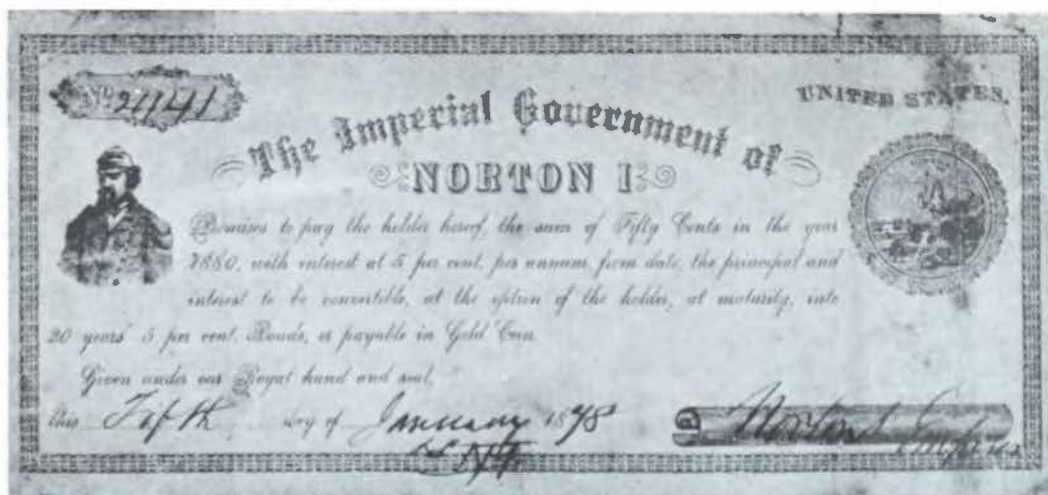 No 2441
UNITED STATES.
The Imperial Government of
NORTON I
Promises to pay the holder hereof, the sum of Fifty Cents in the year
1880, with interest at 5 per cent. per annum from date, the principal and
interest to be convertible, at the option of the holder, at maturity, into
20 years' 5 per cent. Bonds, or payable in Gold Coin
Given under our Royal hand and seal,
this Fifth day of January 1878
Norton I
Emperor